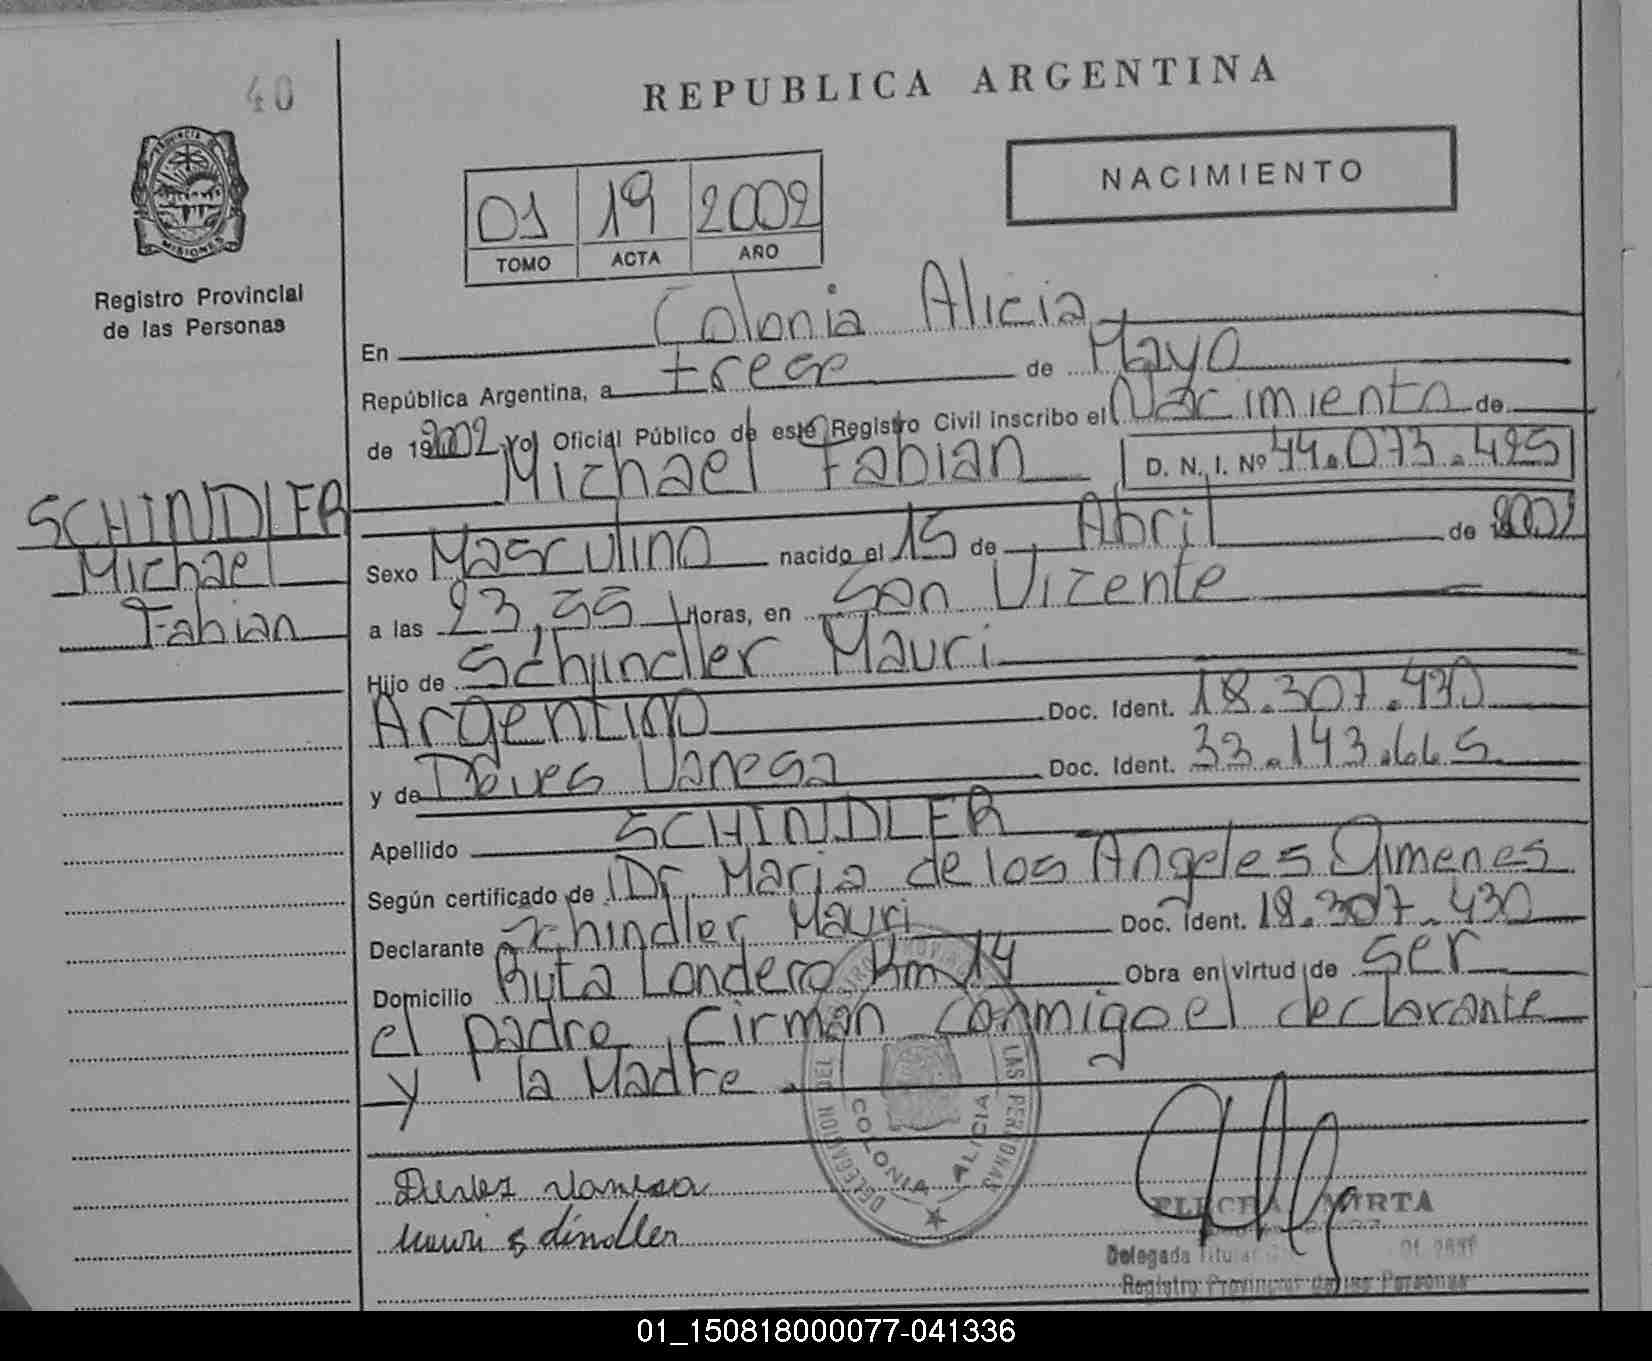 40
REPUBLICA ARGENTINA
NACIMIENTO
01 19 2002
TOMO ACTA AÑO
PROVINCIA
MISIONES
Registro Provincial
de las Personas
En Colonia Alicia
República Argentina, a trece de Mayo
de 192002 yo Oficial Público de este Registro Civil inscribo el Nacimiento de
Michael Fabian D. N. I. Nº 44.073.495
SCHINDLER
Michael
Fabian
Sexo Masculino nacido el 15 de Abril de 2002
a las 23,55 Horas, en San Vicente
Hijo de Schindler Mauri
Argentino Doc. Ident. 18.307.430
y de Deves Vanesa Doc. Ident. 33.143.665
Apellido SCHINDLER
Según certificado de Dr. Maria de los Angeles Gimenes
Declarante Schindler Mauri Doc. Ident. 18.307.430
Domicilio Ruta Londero Km 14 Obra en virtud de ser
el padre, firman conmigo el declarante
y la Madre.
DELEGACION DEL LAS PERSONAS
COLONIA ALICIA
Vanesa
Mauri
MIRTA
Delegada Titular
Registro Provincial de las Personas
01_150818000077-041336